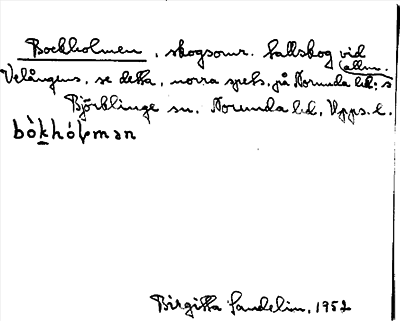 Bockholmen, skogsomr. tallskog vid
Velångens, se detta, norra spets, på Norunda hd:s allm.
Björklinge sn. Norunda hd. Upps. l.
bòkhólmən
Birgitta Sandelin, 1952